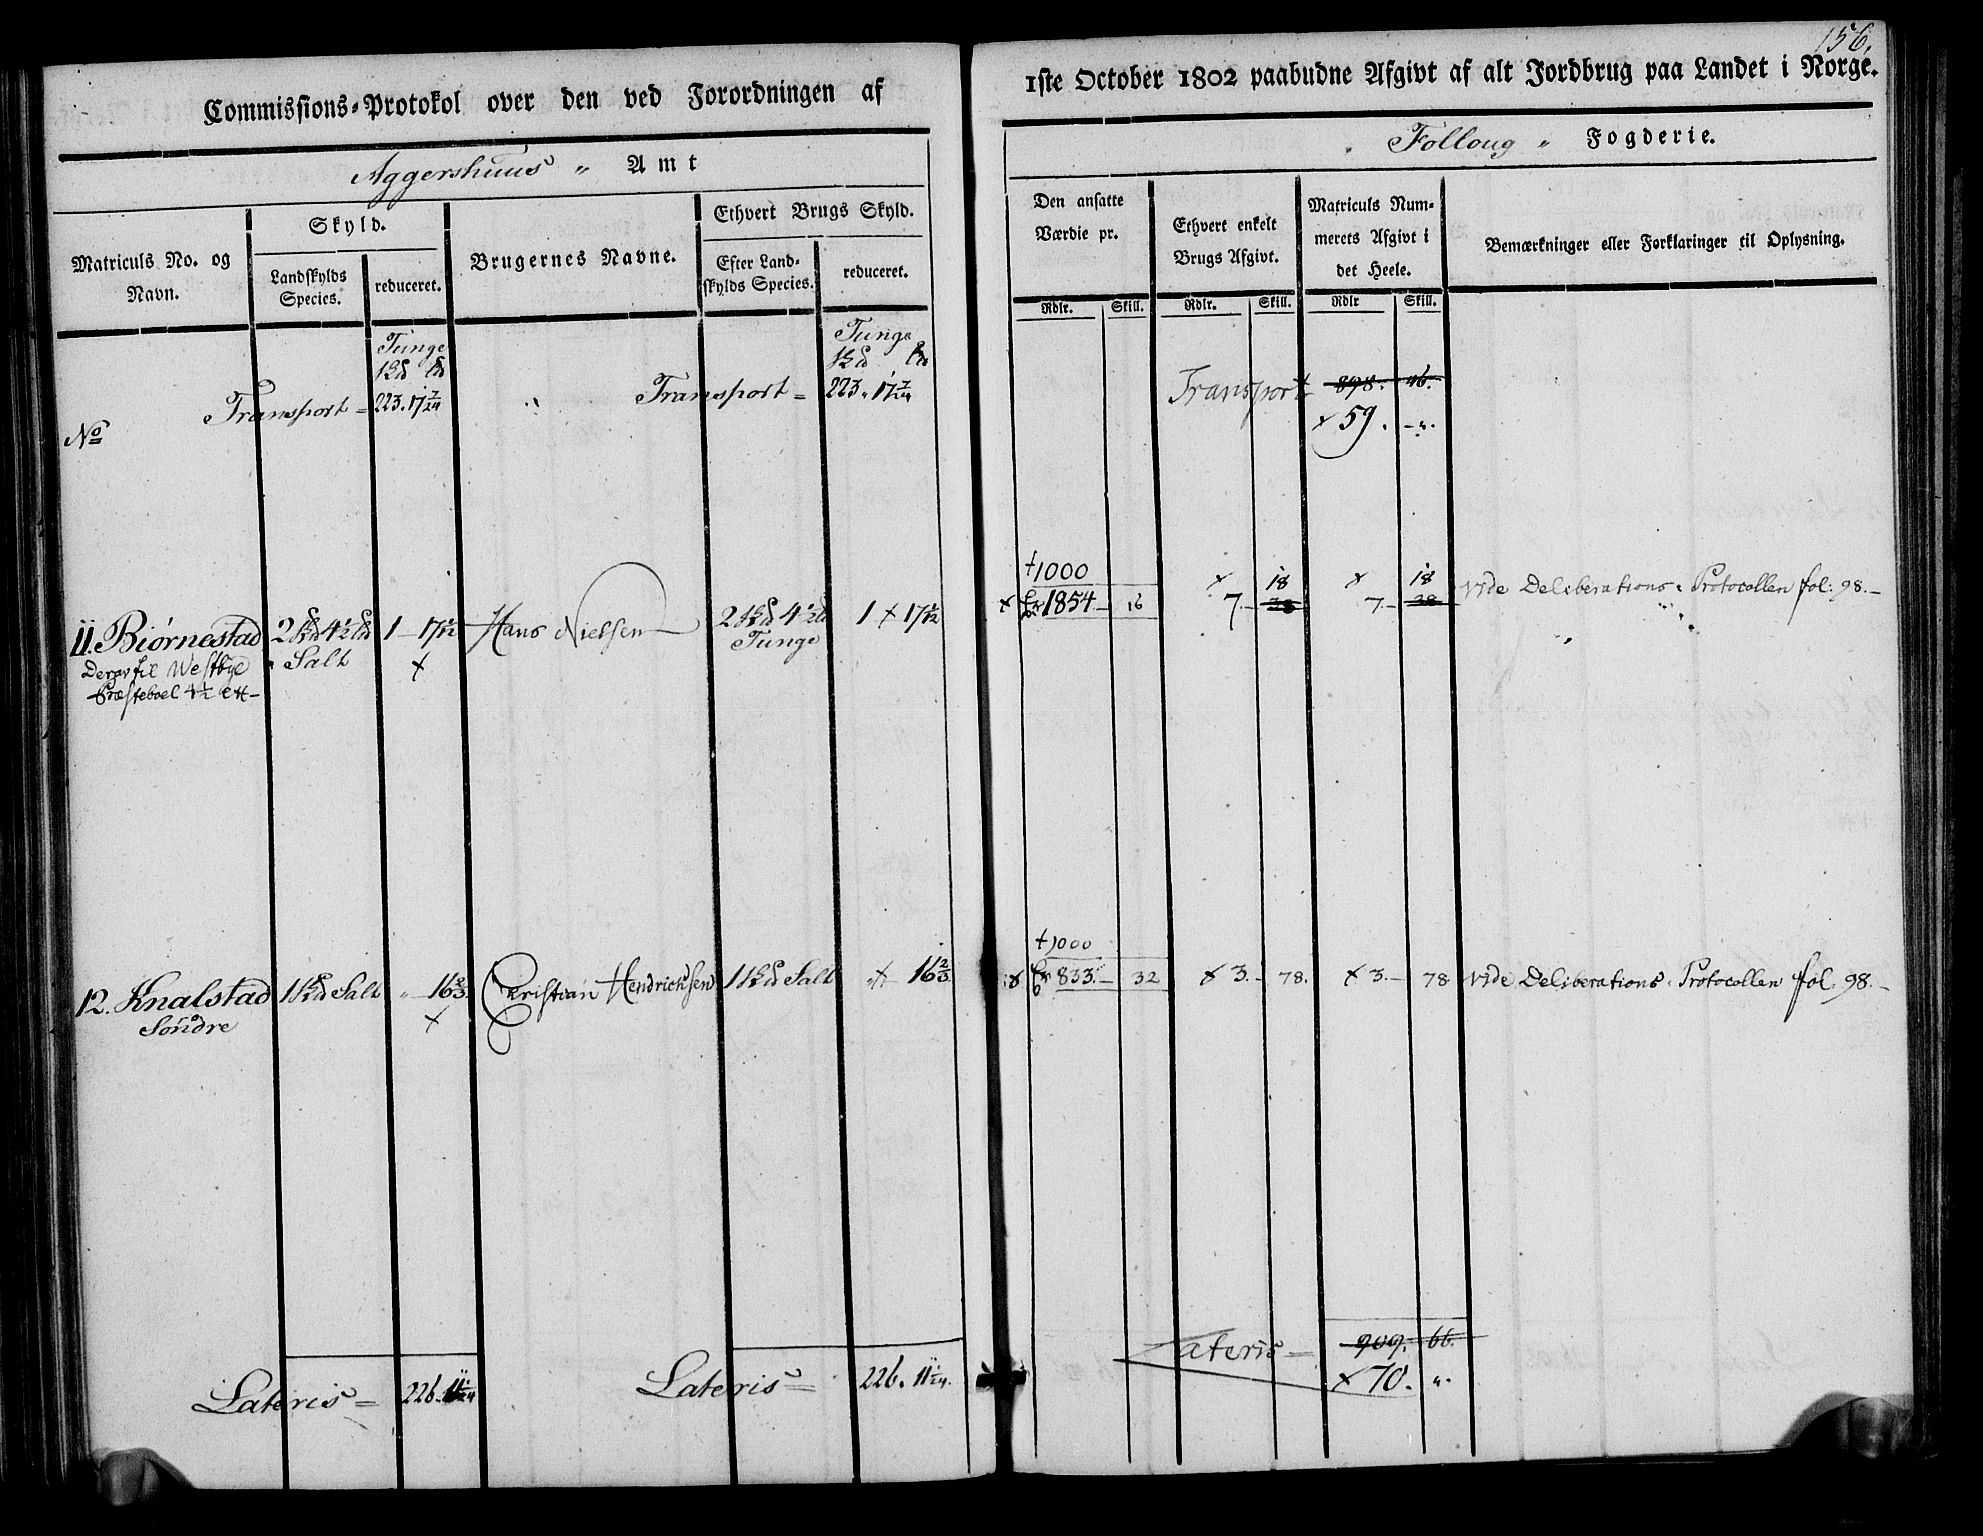 156.
Commissions-Protokol over den ved Forordningen af
1ste October 1802 paabudne Afgivt af alt Jordbrug paa Landet i Norge.
Aggershuus " Amt
" Folloug " Fogderie.
Matriculs No. og Navn.
Skyld.
Landskylds Species.
reduceret.
Brugernes Navne.
Ethvert Brugs Skyld.
Efter Landskylds Species.
reduceret.
Den ansatte Værdie pr.
Rdlr. Skill.
Ethvert enkelt Brugs Afgivt.
Rdlr. Skill.
Matriculs Nummerets Afgivt i det Heele.
Rdlr Skill.
Bemærkninger eller Forklaringer til Oplysning.
Tunge Tunge
Transport = 223. 17 7/24 Transport = 223. 17 7/24 Transport 898. 46.
× 59. - ".
No
+1000 × 18 × 18
11. Biørnestad 2 4½ 1 - 17 1/12 Hans Nielsen 2 4½ 1 × 17 1/12 × 1854 - 16 7. - 7. - vide Deliberations Protocollen fol: 98. -
Salt × Tunge
Deraf til Westbye
Præsteboel 4½
+1000
12. Knalstad 1 Salt " 16 2/3. Christian Hendrichsen 1 Salt 16 2/3 833. - 32 × 3. - 78. × 3. - 78 vide Deliberations Protocollen fol. 98. -
Søndre ×
Lateris = 226. 11 1/24 Lateris = 226. 11 1/24. Lateris = 909. 66.
× 70. ".